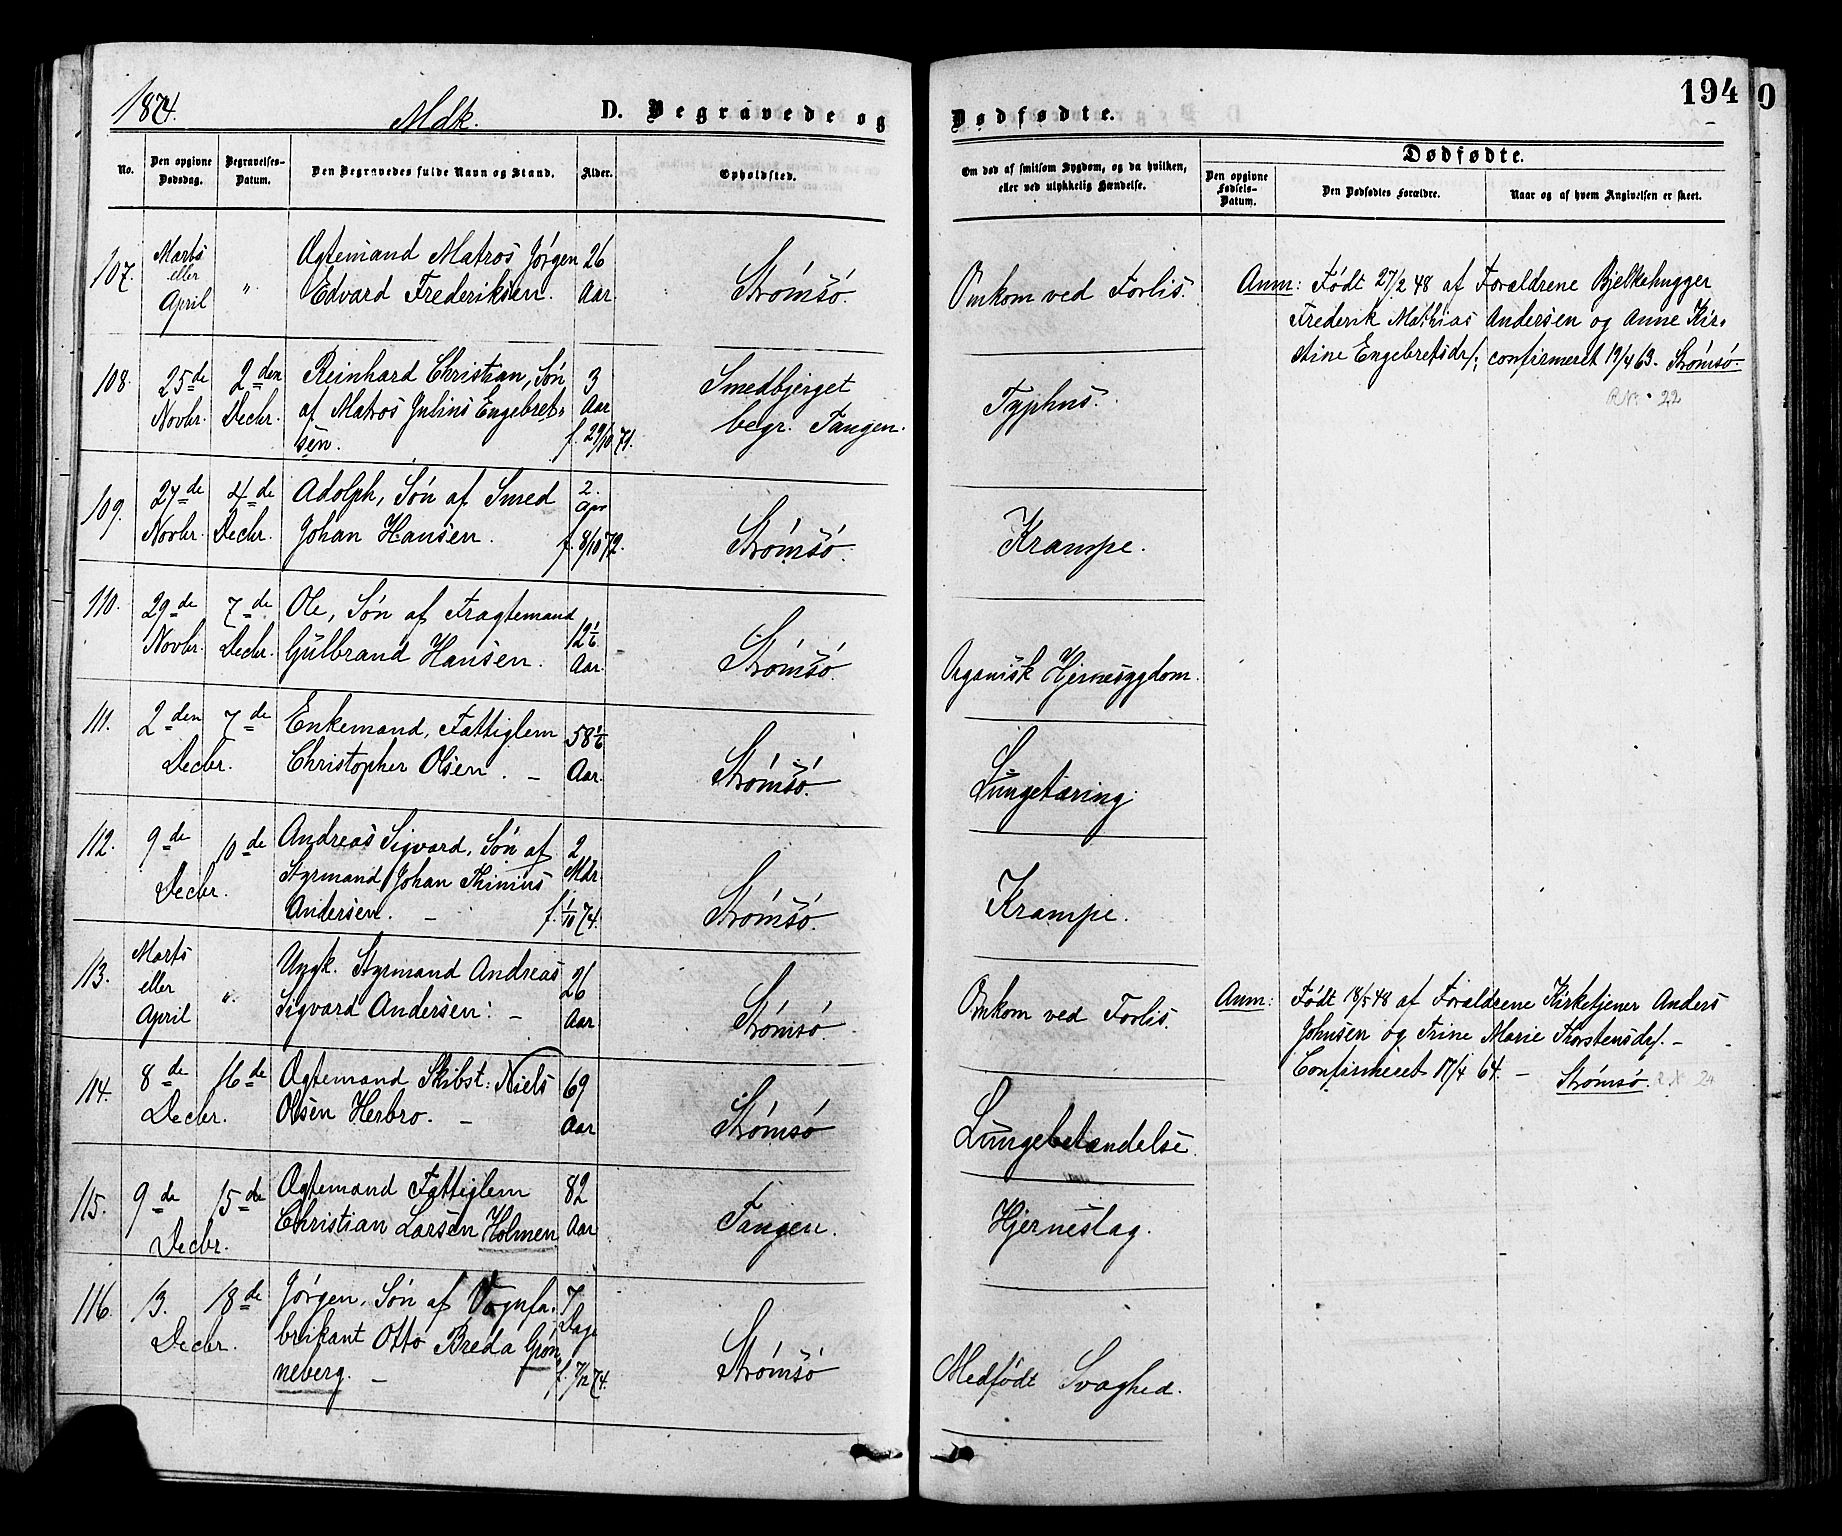 1874.
Mdk.
D. Begravede og
Dødfødte.
194
0
No.
Den opgivne
Dødsdag.
Begravelses-
Datum.
Den Begravedes fulde Navn og Stand.
Alder.
Opholdsted.
Om død af smitsom Sygdom, og da hvilken,
eller ved ulykkelig Hændelse.
Dødfødte.
Den opgivne
Fødsels-
Datum.
Den Dødfødtes Forældre.
Naar og af hvem Angivelsen er skeet.
107.
Marts
eller
April
"
Ægtemand Matros Jørgen
Edvard Frederiksen.
26
Aar.
Strømsö.
Omkom ved Forlis.
Anm: Født 27/2 48 af Forældrene Bjelkehugger
Frederik Mathias Andersen og Anne Kir-
stine Engebretsdr; confirmeret 19/4 63. Strømsö.
R No. 22
108.
25de
Novbr.
2den
Decbr.
Reinhard Christian, Søn
af Matros Julius Engebret-
sen.
3
Aar
f. 29/10 71.
Smedbjerget
begr. Tangen.
Typhus.
109.
27de
Novbr.
4de
Decbr.
Adolph, Søn af Smed
Johan Hansen.
2.
Aar
f. 8/10 72.
Strømsö.
Krampe.
110.
29de
Novbr.
7de
Decbr.
Ole, Søn af Fragtemand
Gulbrand Hansen.
12 1/6
Aar.
Strømsö.
Organisk Hjernesygdom.
111.
2den
Decbr.
7de
Enkemand, Fattiglem
Christopher Olsen. –
58 1/6
Aar.
Strømsö.
Lungetæring.
112.
9de
Decbr.
10de
Andreas Sigvard, Søn af
Styrmand Johan Thinius
Andersen. –
2
Mdr
f. 1/10 74.
Strømsö.
Krampe.
113.
Marts
eller
April
"
Ungk. Styrmand Andreas
Sigvard Andersen. –
26
Aar
Strømsö.
Omkom ved Forlis.
Anm: Født 18/5 48 af Forældrene Kirketjener Anders
Johnsen og Trine Marie Thorstensdr. –
Confirmeret 17/4 64. – Strømsö. R N 24
114.
8de
Decbr.
16de
Ægtemand Skibst: Niels
Olsen Herbro. –
69
Aar
Strømsö
Lungebetændelse.
115.
9de
Decbr.
15de
Ægtemand Fattiglem
Christian Larsen Holmen
82
Aar
Tangen.
Hjerneslag.
116.
13.
Decbr.
18de
Jørgen, Søn af Vognfa-
brikant Otto Breda Grøn-
neberg. –
7
Dage
f. 7/12 74.
Strømsö
Medfødt Svaghed.